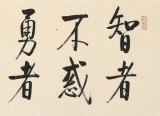 智者
不惑
勇者